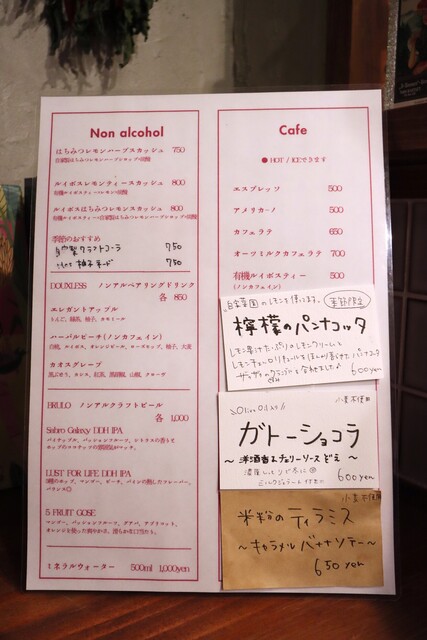 Non alcohol
はちみつレモンハーブスカッシュ 750
ルイボスレモンティースカッシュ 800
ルイボスはちみつレモンハーブスカッシュ 800
季節のおすすめ
自家製クラフトコーラ 750
柚子ソーダ 750
DOUXLESS ノンアルペアリングドリンク
各 850
エレガントアップル
りんご、緑茶、柚子、カモミール
ハーバルピーチ(ノンカフェイン)
白桃、ルイボス、オレンジピール、ローズヒップ、柚子、大麦
カオスグレープ
黒ぶどう、カシス、紅茶、黒胡椒、山椒、クローブ
BRULO ノンアルクラフトビール
各 1,000
Sabro Galaxy DDH IPA
パイナップル、パッションフルーツ、シトラスの香りと
LUST FOR LIFE DDH IPA
5 FRUIT GOSE
マンゴー、パッションフルーツ、グアバ、アプリコット、
オレンジを使った爽やかさ、滑らかな口当たり。
ミネラルウォーター 500ml 1,000yen
Cafe
● HOT / ICEできます
エスプレッソ 500
アメリカーノ 500
カフェラテ 650
オーツミルクカフェラテ 700
有機ルイボスティー 500
(ノンカフェイン)
のレモンを使ってます。 季節限定
檸檬のパンナコッタ
レモン果汁たっぷりのレモンクリームと
600yen
小麦不使用
ガトーショコラ
～洋酒香るチェリーソースどえ～
600yen
小麦不使用
米粉のティラミス
～キャラメルバナナソテー～
650yen